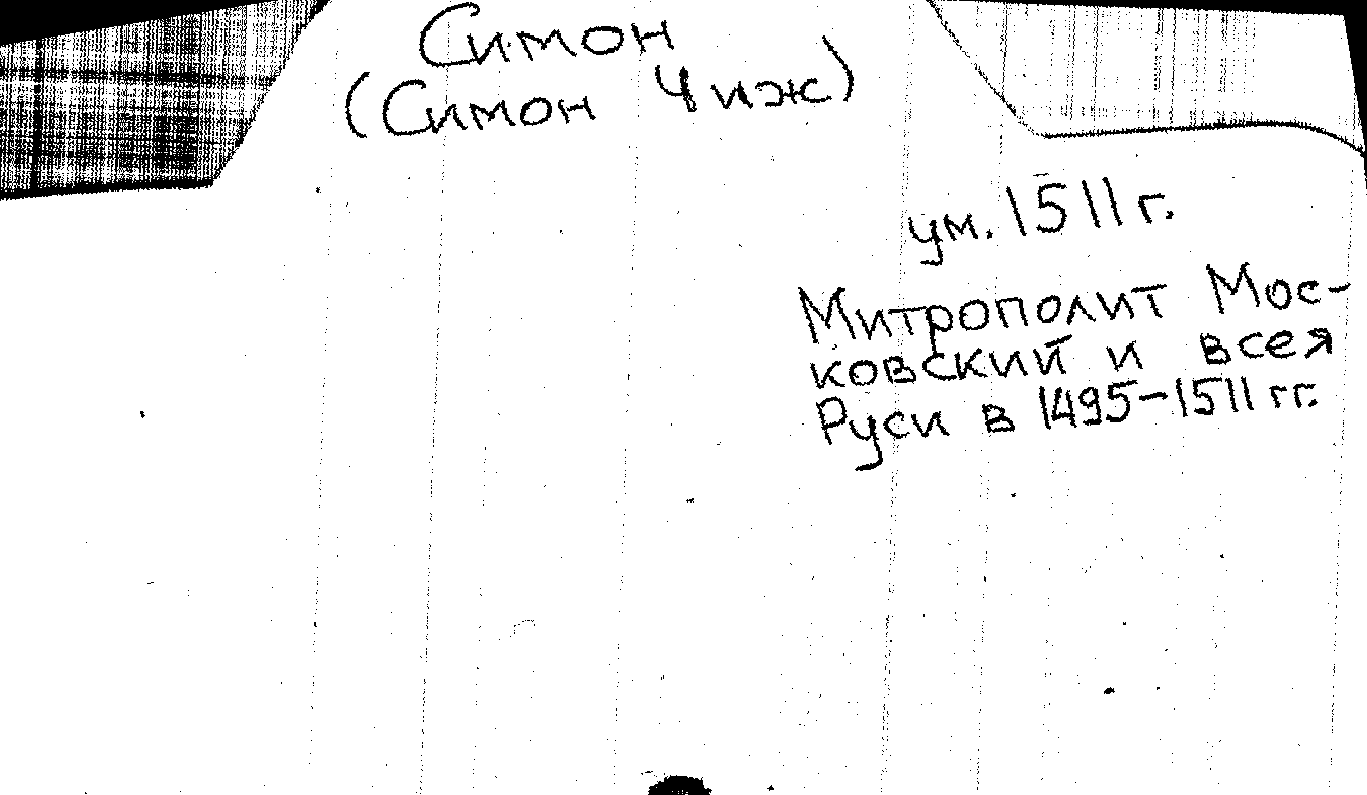 Симон
(Симон Чиж)
ум. 1511 г.
Митрополит Мос-
ковский и всея
Руси в 1495-1511 гг.